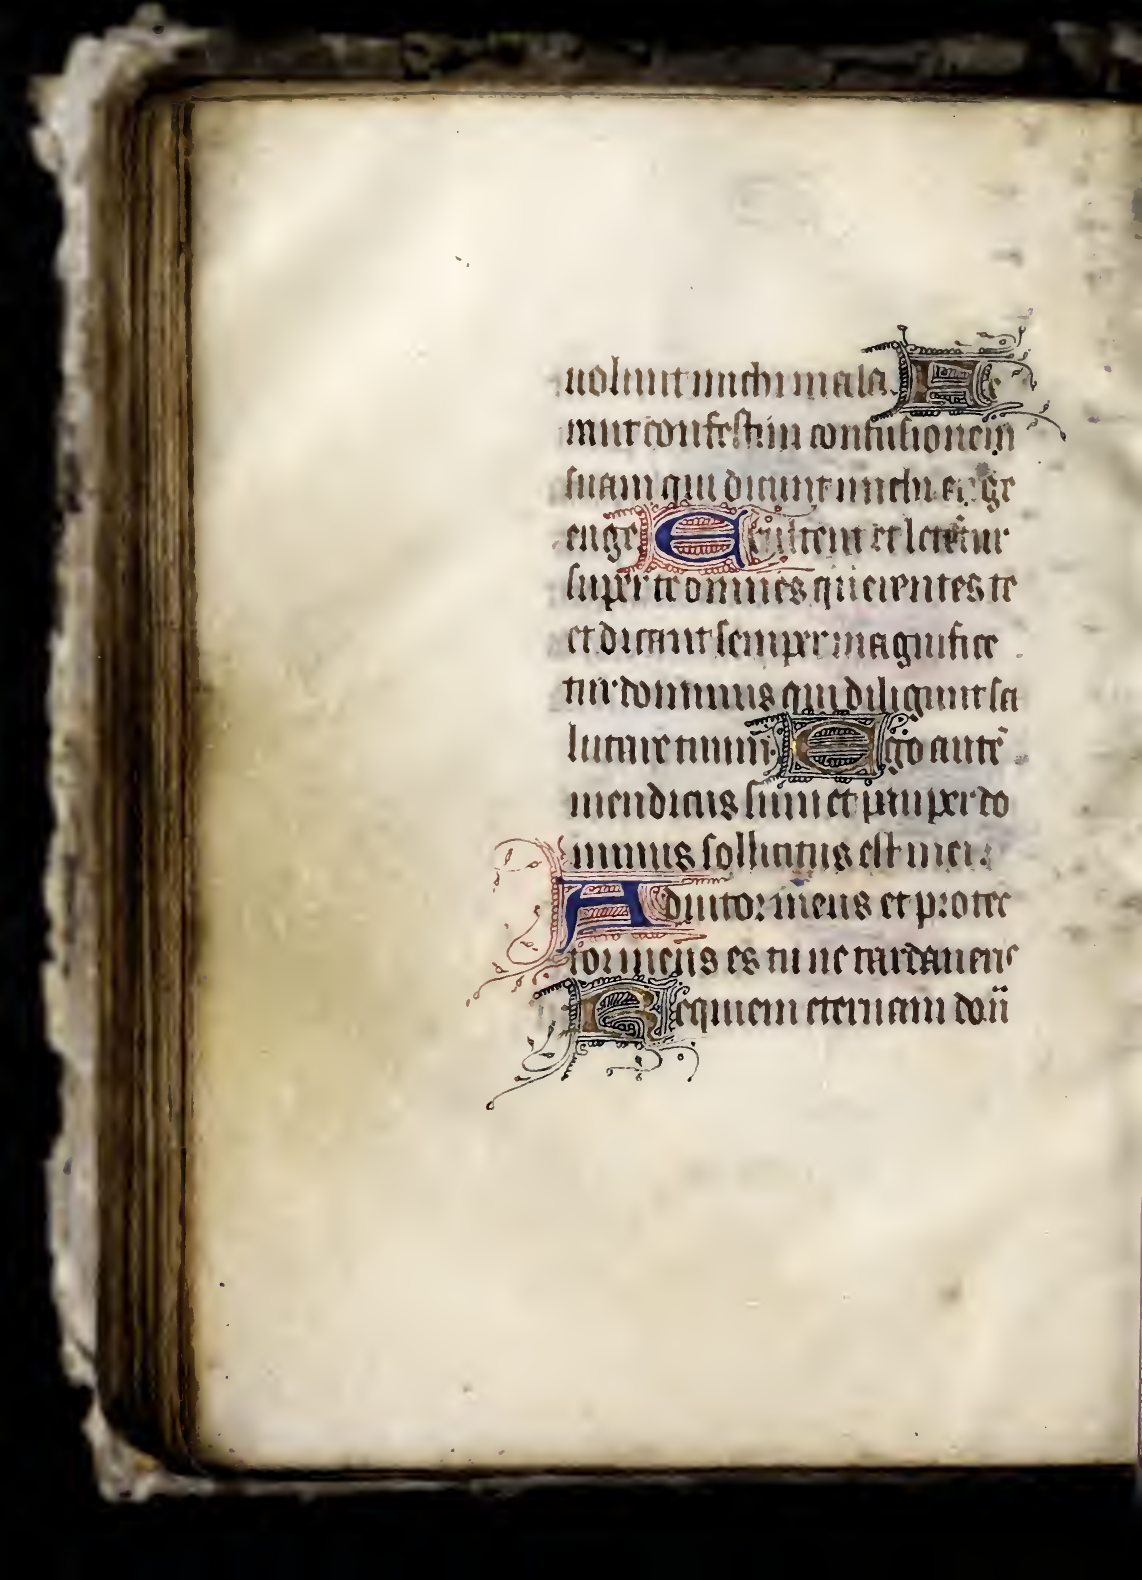 uolunt michi mala. Fe
rant confestim confusionem
suam qui dicunt michi euge
euge Exultent et letentur
super te omnes querentes te
et dicant semper magnifice
tur dominus qui diligunt sa
lutare tuum. Ego autē
mendicus sum et pauper do
minus sollicitus est mei.
Adiutor meus et protec
tor meus es tu ne tardaueris
Requiem eternam don̄